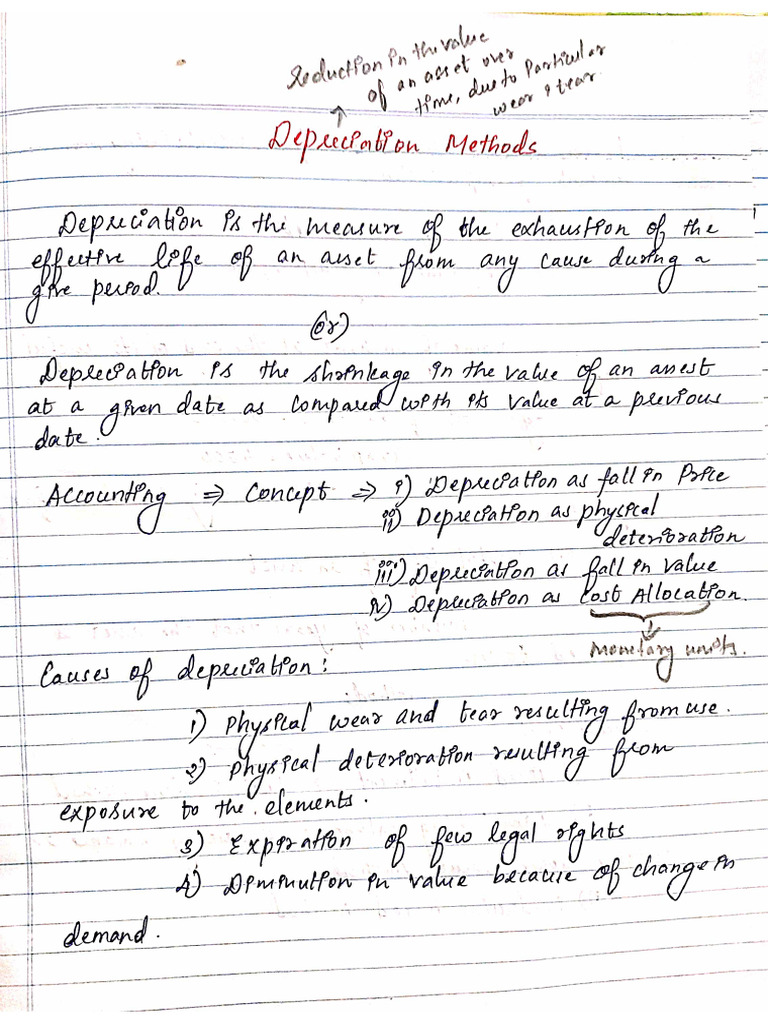 Reduction in the value
of an asset over
time, due to Particular
wear & tear.
Depreciation Methods
Depreciation is the measure of the exhaustion of the
effective life of an asset from any cause during a
give period.
(or)
Depreciation is the shrinkage in the value of an assest
at a given date as compared with its value at a previous
date.
Accounting ⇒ Concept ⇒ i) Depreciation as fall in Price
ii) Depreciation as physical
deterioration
iii) Depreciation as fall in value
iv) Depreciation as Cost Allocation.
Monetary units.
Causes of depreciation:
1) Physical wear and tear resulting from use.
2) Physical deterioration resulting from
exposure to the elements.
3) Expiration of few legal rights
4) Diminution in value because of change in
demand.